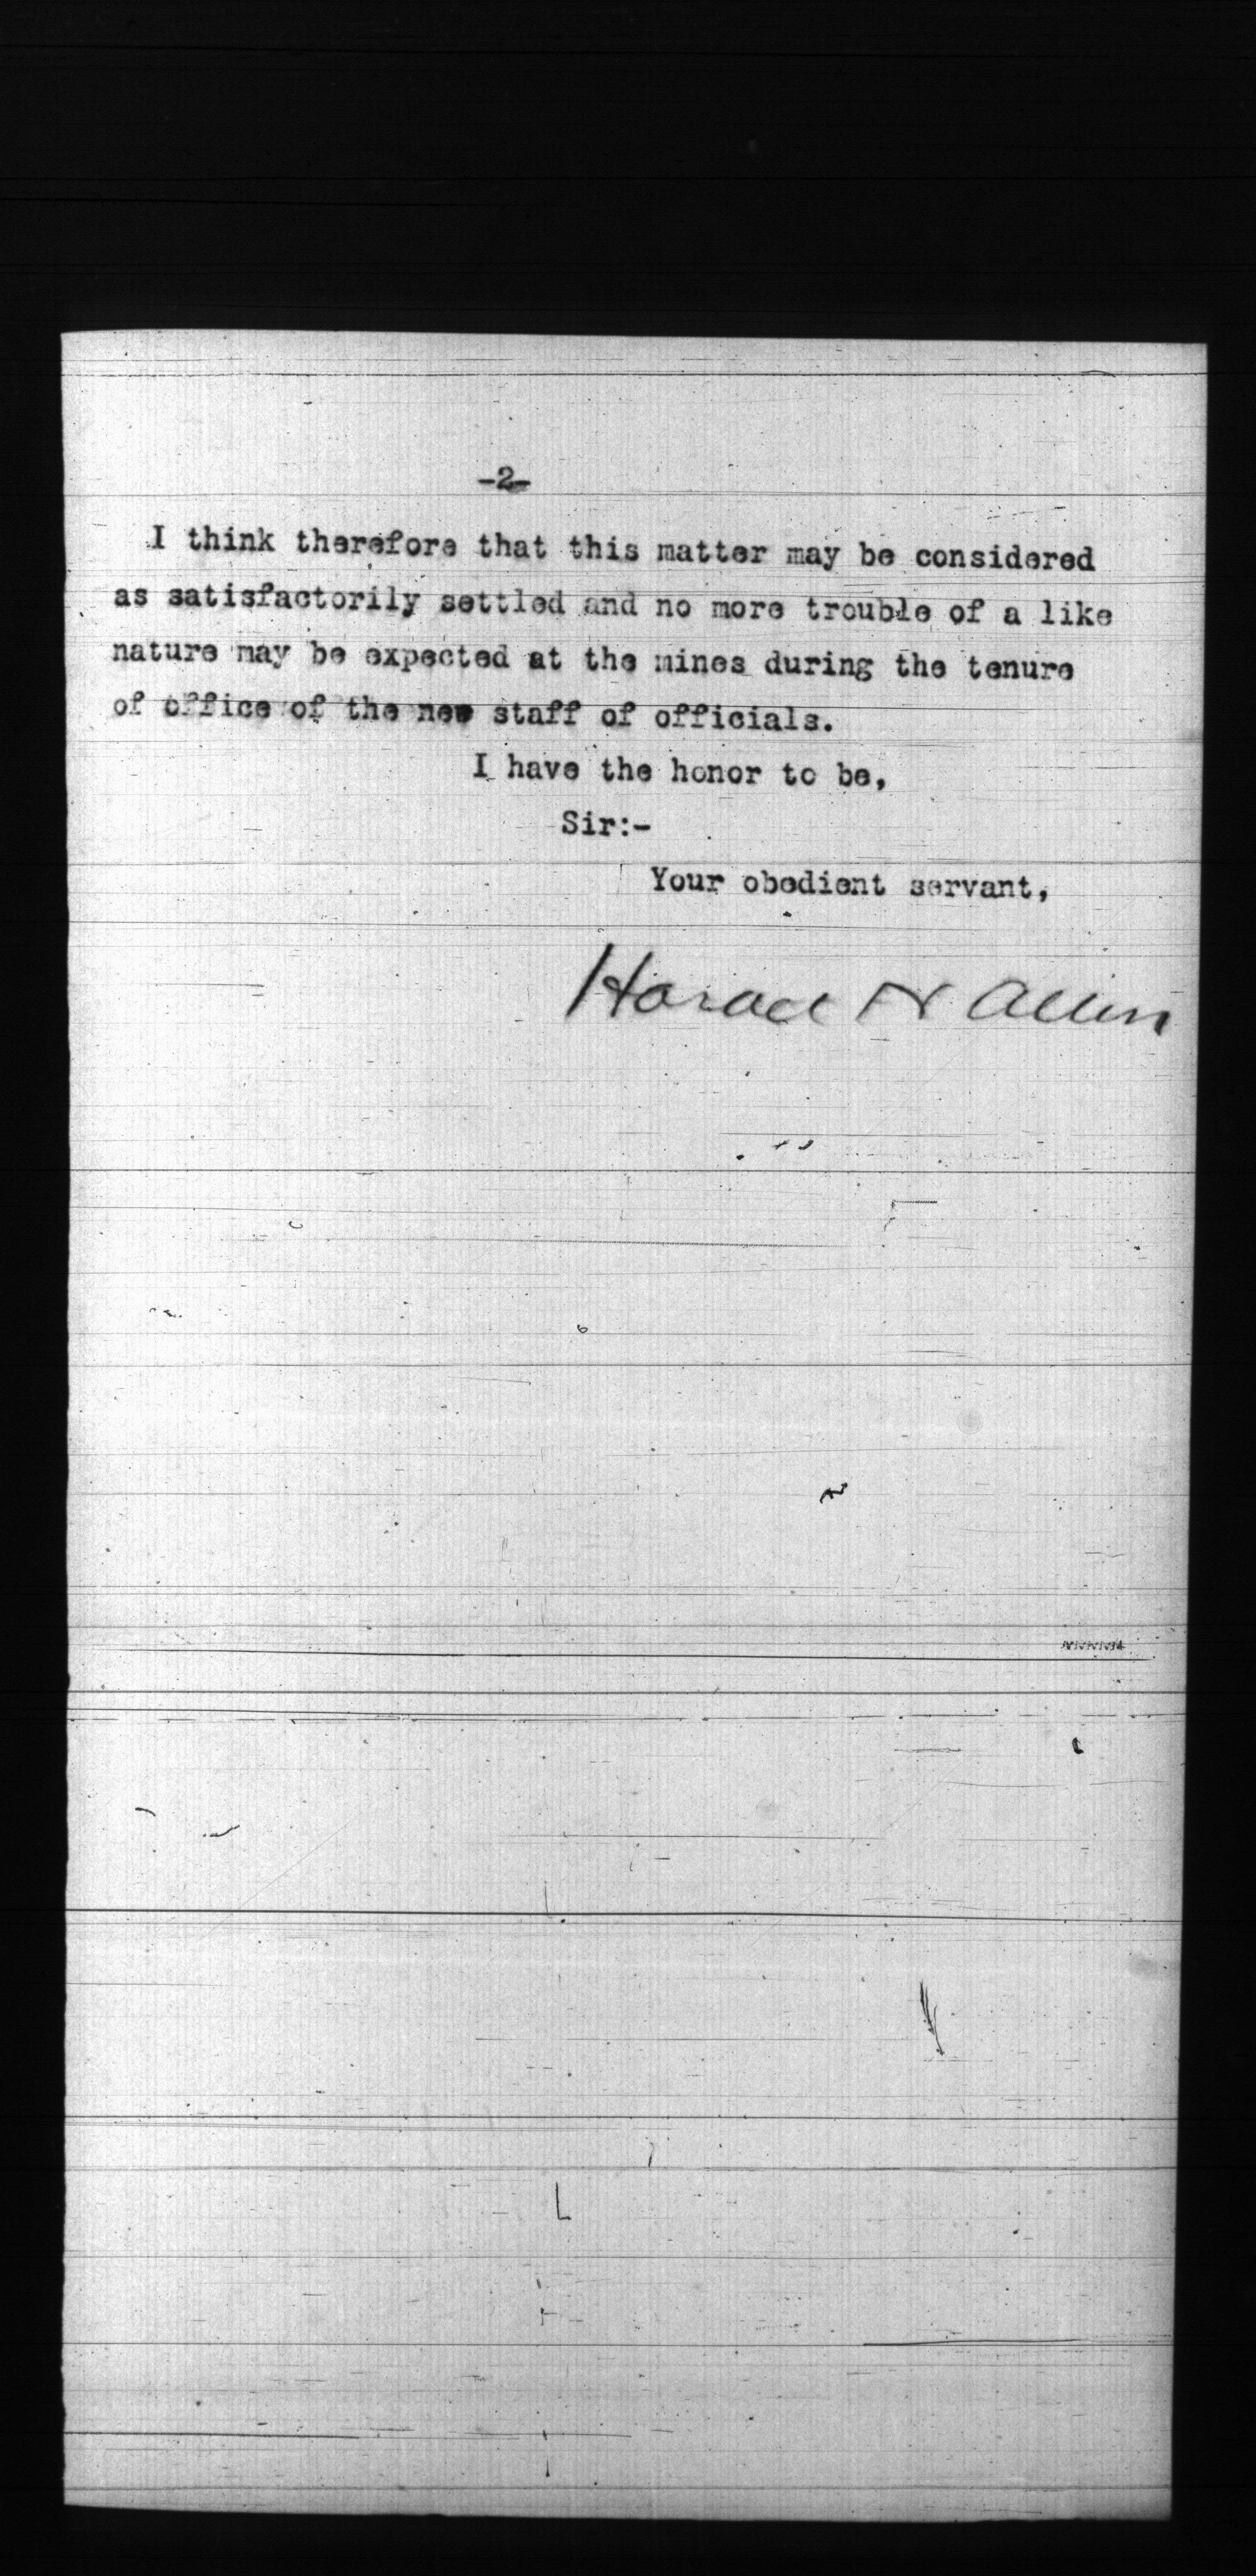 -2-
I think therefore that this matter may be considered
as satisfactorily settled and no more trouble of a like
nature may be expected at the mines during the tenure
of office of the new staff of officials.
I have the honor to be,
Sir:-
Your obedient servant,
Horace N Allen